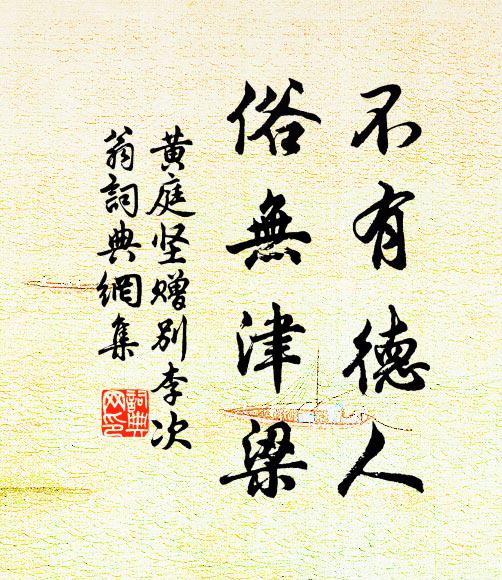 不有德人
俗無津梁
黄庭坚贈別李次
翁詞典網集
詞典
网印